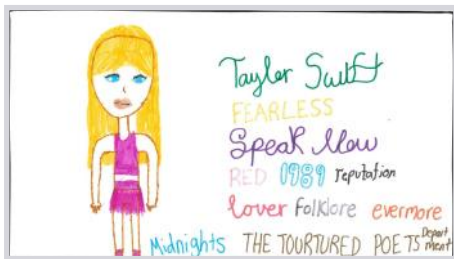 Tayler Swift
FEARLESS
Speak Now
RED 1989 reputation
Lover Folklore evermore
Midnights THE TOURTURED POETS Department